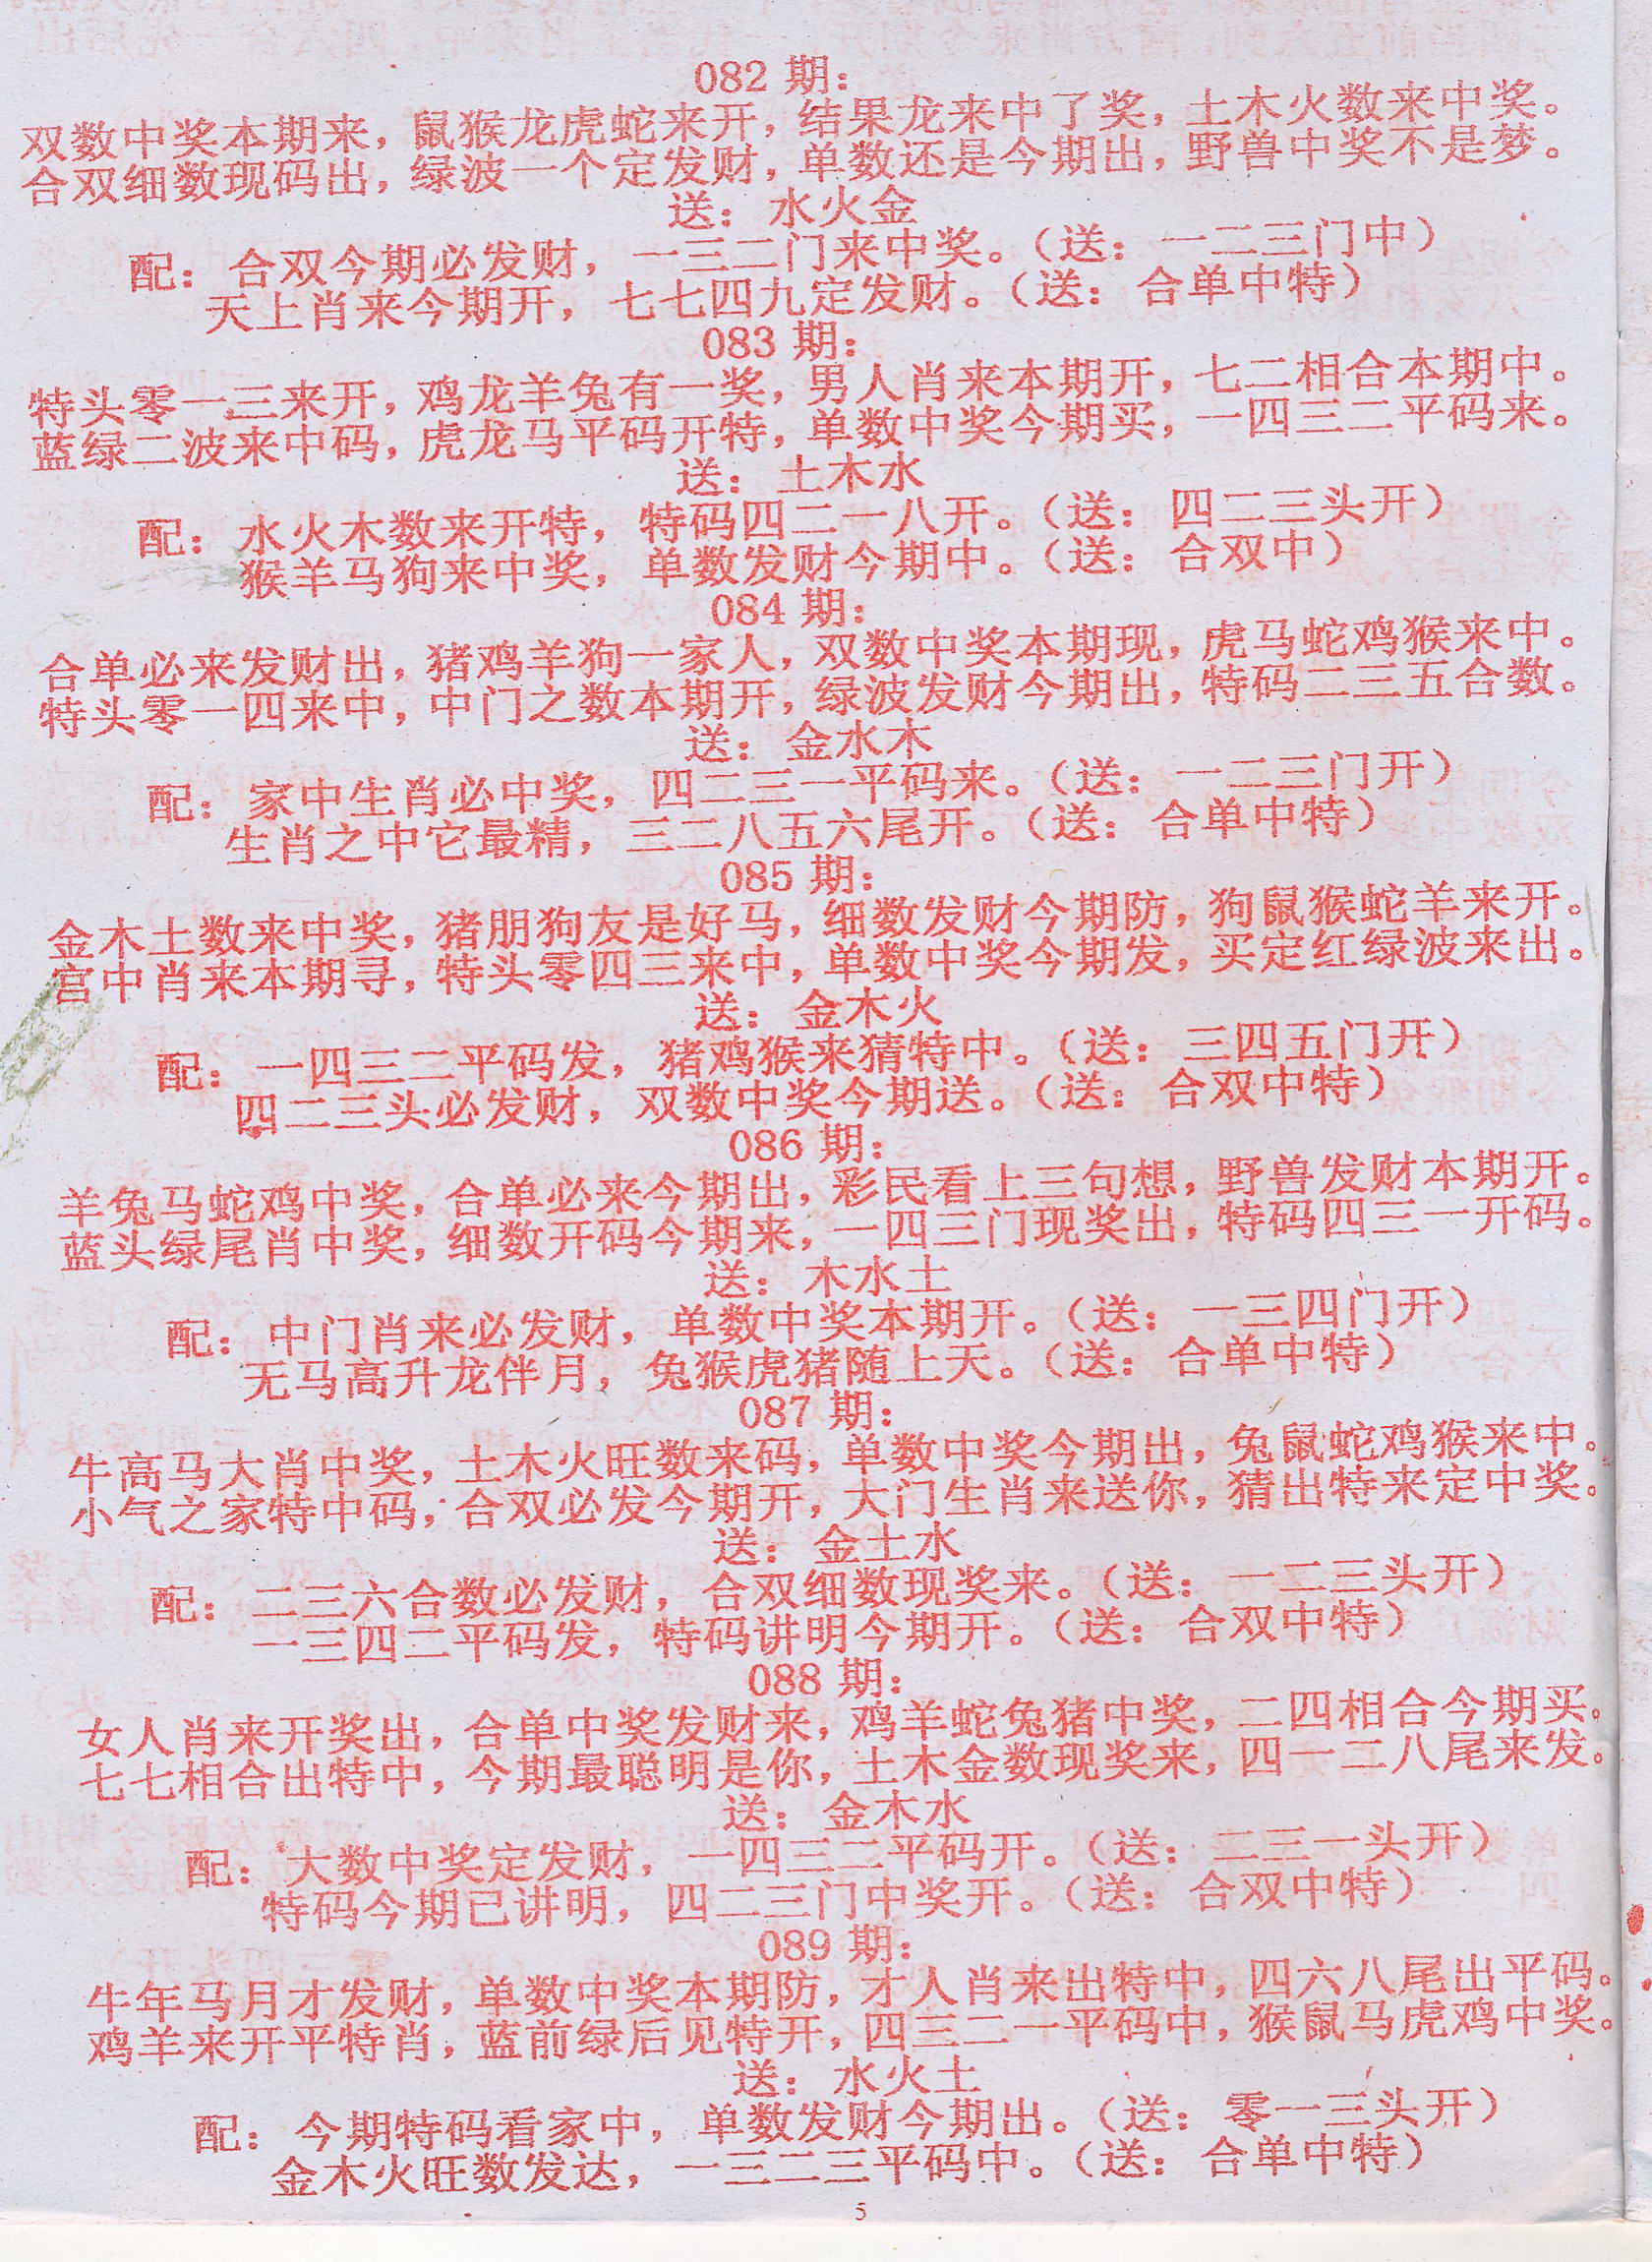 082 期：
双数中奖本期来，鼠猴龙虎蛇来开，结果龙来中了奖，土木火数来中奖。
合双细数现码出，绿波一个定发财，单数还是今期出，野兽中奖不是梦。
送：水火金
配：合双今期必发财，一三二门来中奖。（送：一二三门中）
天上肖来今期开，七七四九定发财。（送：合单中特）
083 期：
特头零一三来开，鸡龙羊兔有一奖，男人肖来本期开，七二相合本期中。
蓝绿二波来中码，虎龙马平码开特，单数中奖今期买，一四三二平码来。
送：土木水
配：水火木数来开特，特码四二一八开。（送：四二三头开）
猴羊马狗来中奖，单数发财今期中。（送：合双中）
084 期：
合单必来发财出，猪鸡羊狗一家人，双数中奖本期现，虎马蛇鸡猴来中。
特头零一四来中，中门之数本期开，绿波发财今期出，特码二三五合数。
送：金水木
配：家中生肖必中奖，四二三一平码来。（送：一二三门开）
生肖之中它最精，三二八五六尾开。（送：合单中特）
085 期：
金木土数来中奖，猪朋狗友是好马，细数发财今期防，狗鼠猴蛇羊来开。
宫中肖来本期寻，特头零四三来中，单数中奖今期发，买定红绿波来出。
送：金木火
配：一四三二平码发，猪鸡猴来猜特中。（送：三四五门开）
四二三头必发财，双数中奖今期送。（送：合双中特）
086 期：
羊兔马蛇鸡中奖，合单必来今期出，彩民看上三句想，野兽发财本期开。
蓝头绿尾肖中奖，细数开码今期来，一四三门现奖出，特码四三一开码。
送：木水土
配：中门肖来必发财，单数中奖本期开。（送：一三四门开）
无马高升龙伴月，兔猴虎猪随上天。（送：合单中特）
087 期：
牛高马大肖中奖，土木火旺数来码，单数中奖今期出，兔鼠蛇鸡猴来中。
小气之家特中码，合双必发今期开，大门生肖来送你，猜出特来定中奖。
送：金土水
配：二三六合数必发财，合双细数现奖来。（送：一二三头开）
一三四二平码发，特码讲明今期开。（送：合双中特）
088 期：
女人肖来开奖出，合单中奖发财来，鸡羊蛇兔猪中奖，二四相合今期买。
七七相合出特中，今期最聪明是你，土木金数现奖来，四一二八尾来发。
送：金木水
配：大数中奖定发财，一四三二平码开。（送：二三一头开）
特码今期已讲明，四二三门中奖开。（送：合双中特）
089 期：
牛年马月才发财，单数中奖本期防，才人肖来出特中，四六八尾出平码。
鸡羊来开平特肖，蓝前绿后见特开，四三二一平码中，猴鼠马虎鸡中奖。
送：水火土
配：今期特码看家中，单数发财今期出。（送：零一三头开）
金木火旺数发达，一三二三平码中。（送：合单中特）
5